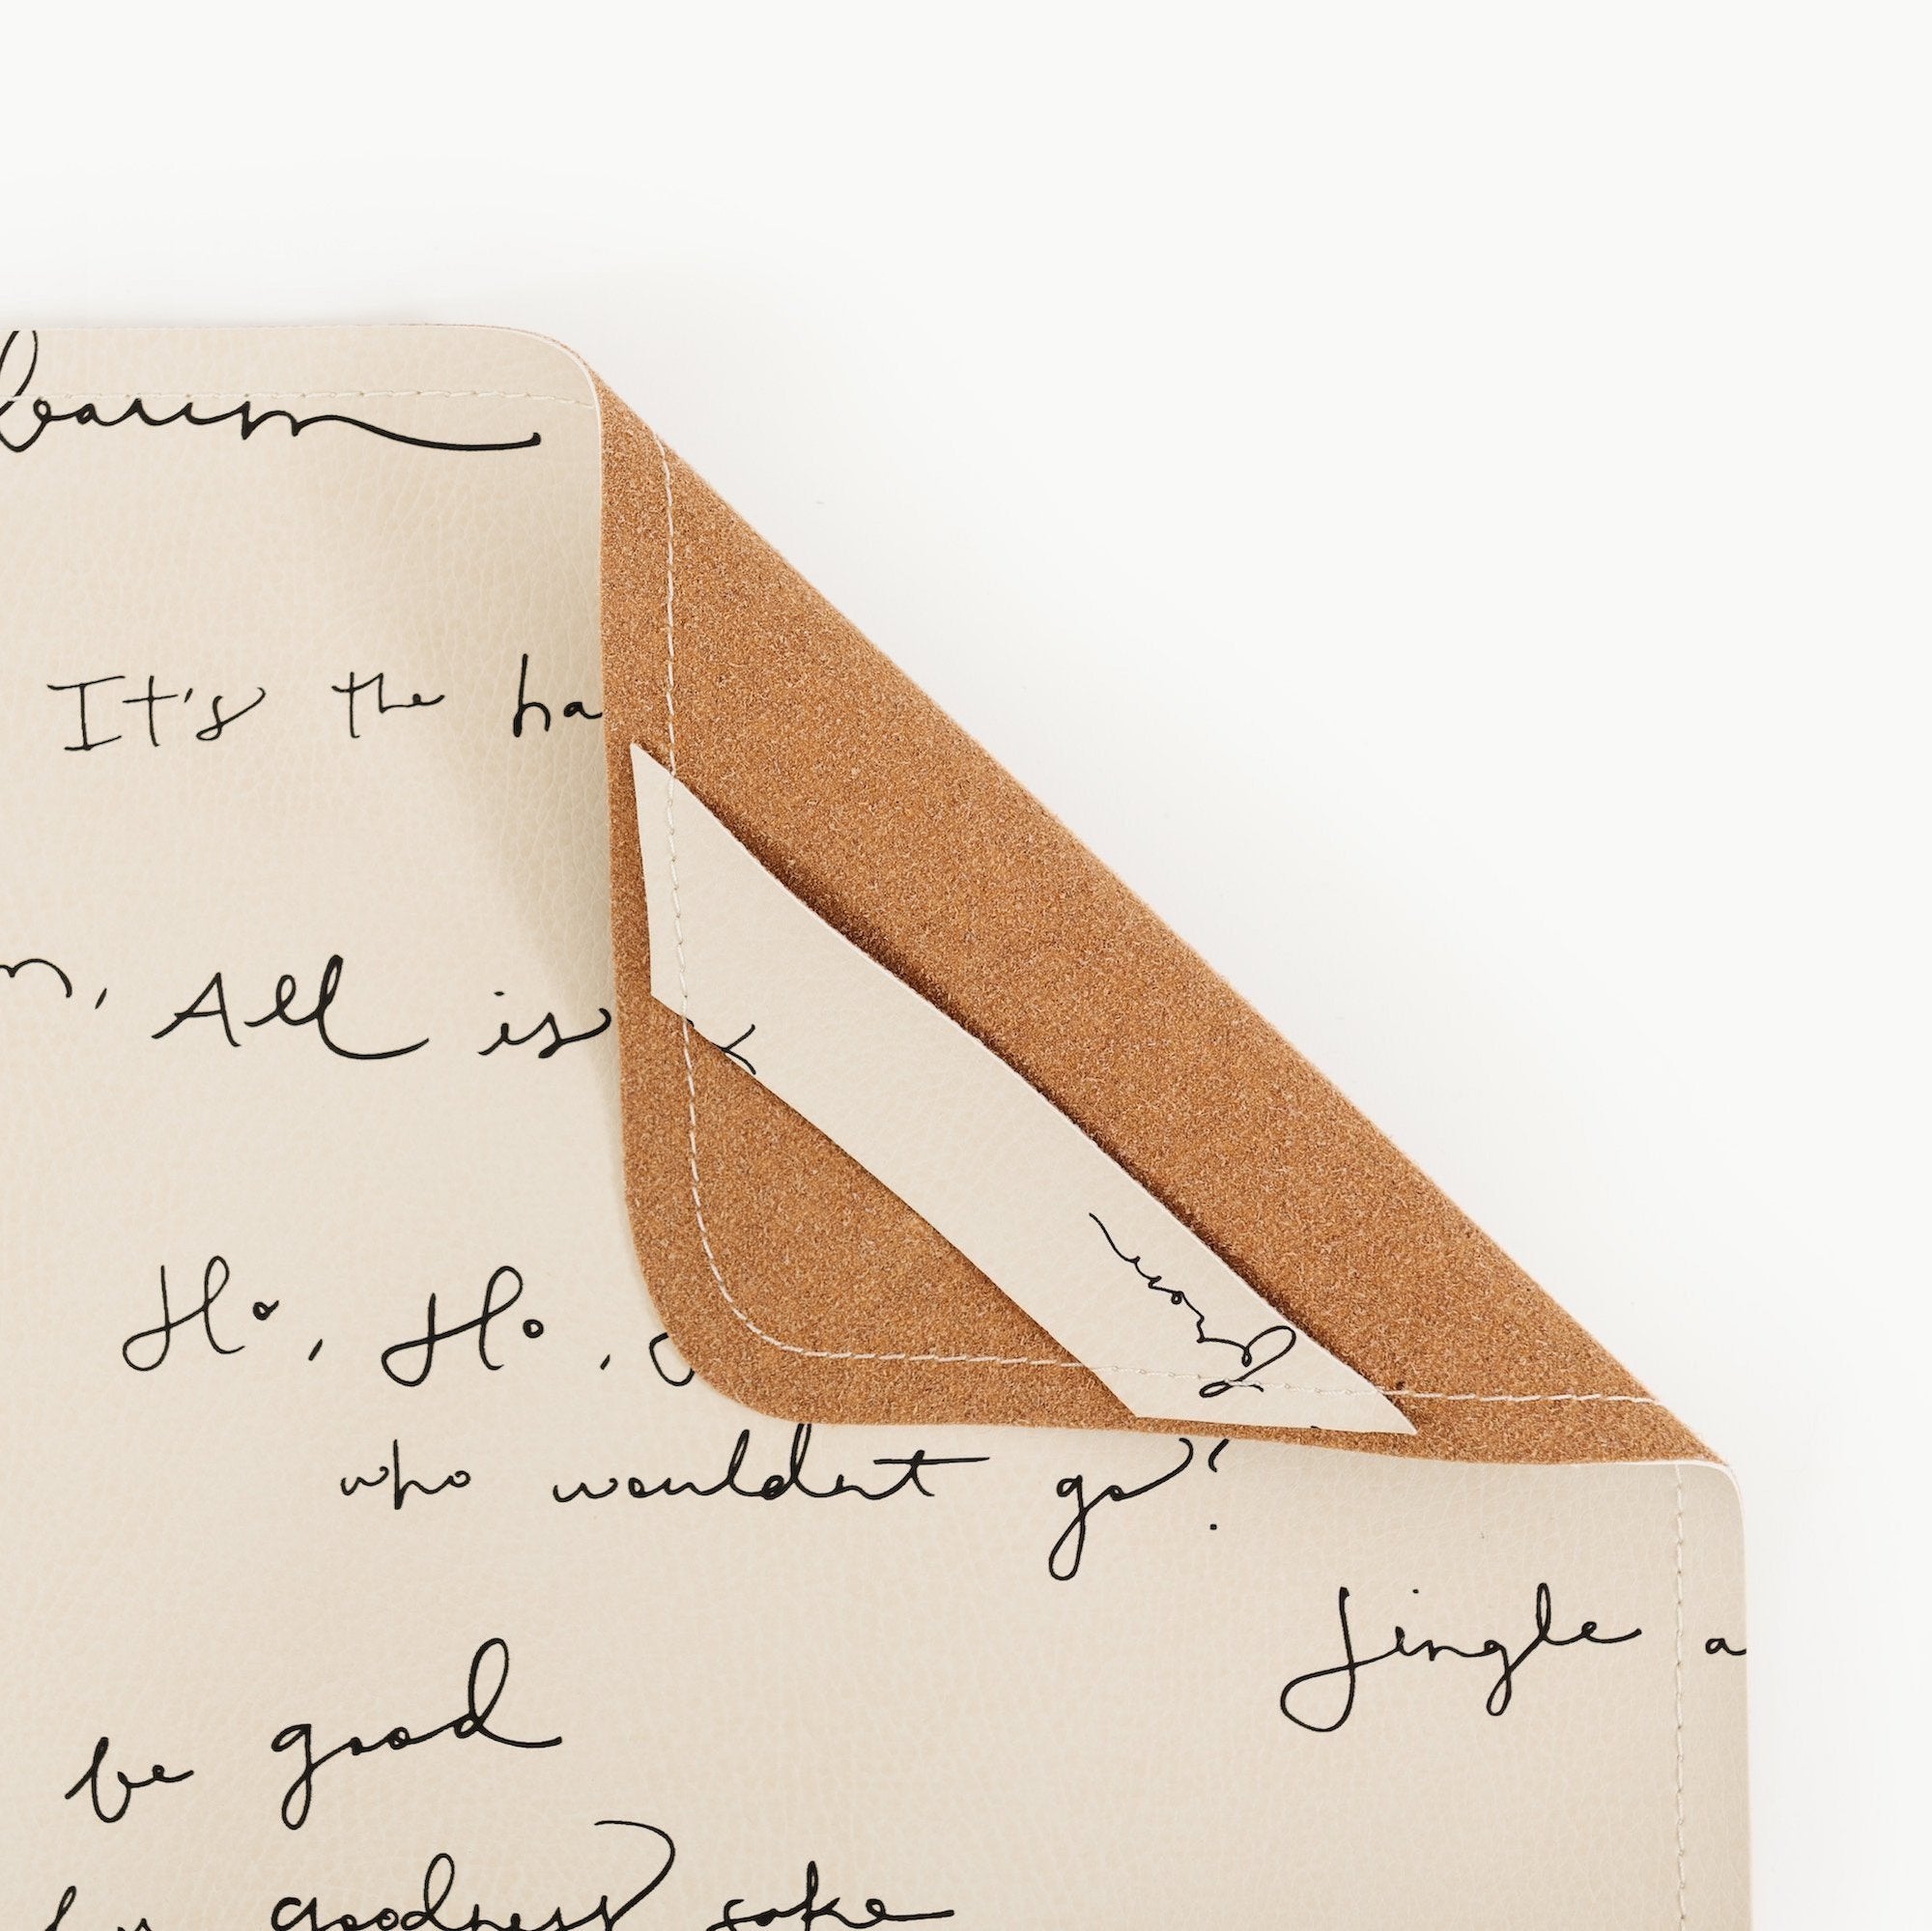 baum
It's the ha
m, All is
Ho, Ho,
who wouldn't go?
Jingle a
be good
goodness sake